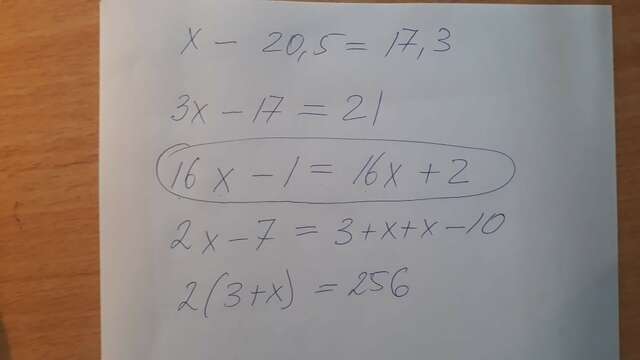 x - 20,5 = 17,3
3x - 17 = 21
16x - 1 = 16x + 2
2x - 7 = 3 + x + x - 10
2(3 + x) = 256